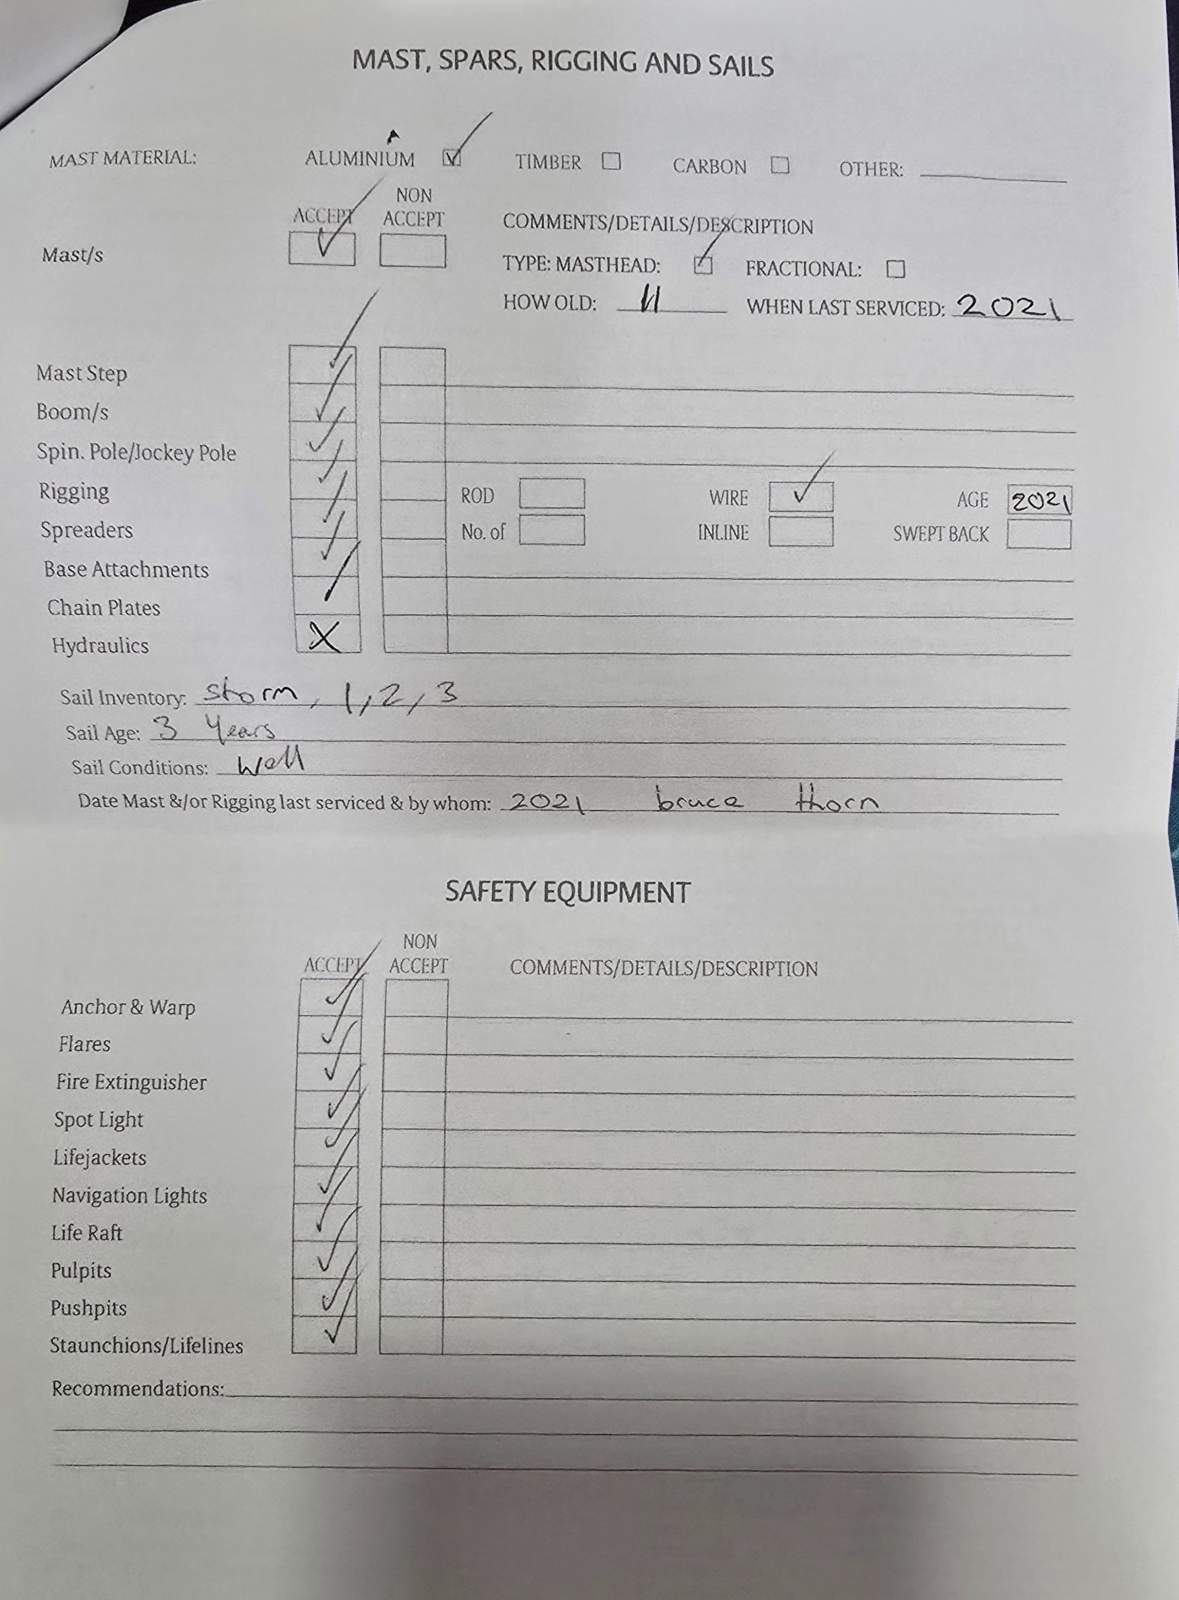 MAST, SPARS, RIGGING AND SAILS
MAST MATERIAL: ALUMINIUM ☑ TIMBER ☐ CARBON ☐ OTHER:
ACCEPT NON ACCEPT COMMENTS/DETAILS/DESCRIPTION
Mast/s ✓ TYPE: MASTHEAD: ☑ FRACTIONAL: ☐
HOW OLD: 11 WHEN LAST SERVICED: 2021
Mast Step ✓
Boom/s ✓
Spin. Pole/Jockey Pole ✓
Rigging ✓ ROD WIRE ✓ AGE 2021
Spreaders ✓ No. of INLINE SWEPT BACK
Base Attachments ✓
Chain Plates ✓
Hydraulics X
Sail Inventory: storm, 1, 2, 3
Sail Age: 3 Years
Sail Conditions: Well
Date Mast &/or Rigging last serviced & by whom: 2021 bruce thorn
SAFETY EQUIPMENT
ACCEPT NON ACCEPT COMMENTS/DETAILS/DESCRIPTION
Anchor & Warp ✓
Flares ✓
Fire Extinguisher ✓
Spot Light ✓
Lifejackets ✓
Navigation Lights ✓
Life Raft ✓
Pulpits ✓
Pushpits ✓
Staunchions/Lifelines ✓
Recommendations: